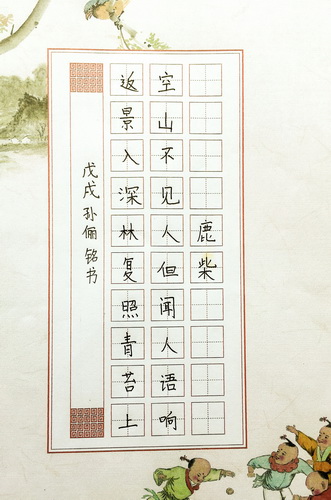 鹿柴
空山不见人但闻人语响
返景入深林复照青苔上
戊戌孙俪铭书